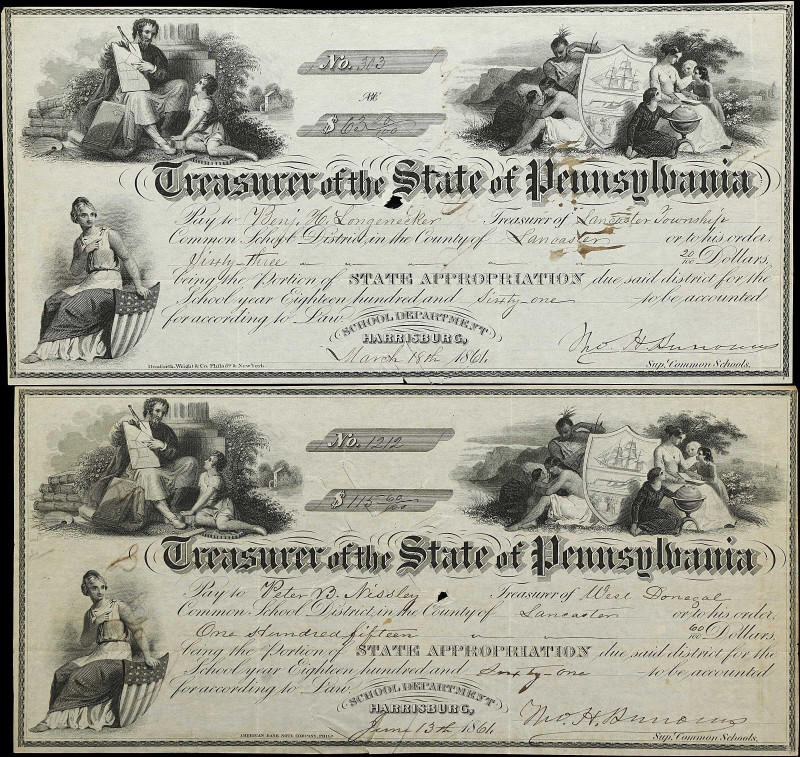 No. 303
$ 63 20/100
Treasurer of the State of Pennsylvania
Pay to Benj. H. Longenecker Treasurer of Lancaster Township
Common School District, in the County of Lancaster or to his order,
Sixty three 20/100 Dollars,
being the Portion of STATE APPROPRIATION due said district for the
School year Eighteen hundred and Sixty one to be accounted
for according to Law.
SCHOOL DEPARTMENT
HARRISBURG,
March 18th 1861.
Sup! Common Schools.
Danforth, Wright & Co. Philada & New York.
No. 1212
$ 115 60/100
Treasurer of the State of Pennsylvania
Pay to Peter B. Nissley Treasurer of West Donegal
Common School District, in the County of Lancaster or to his order,
One Hundred fifteen 60/100 Dollars,
being the Portion of STATE APPROPRIATION due said district for the
School year Eighteen hundred and Sixty-one to be accounted
for according to Law.
SCHOOL DEPARTMENT
HARRISBURG,
June 13th 1861.
Tho. H. Burrowes
AMERICAN BANK NOTE COMPANY, PHILA.
Sup! Common Schools.